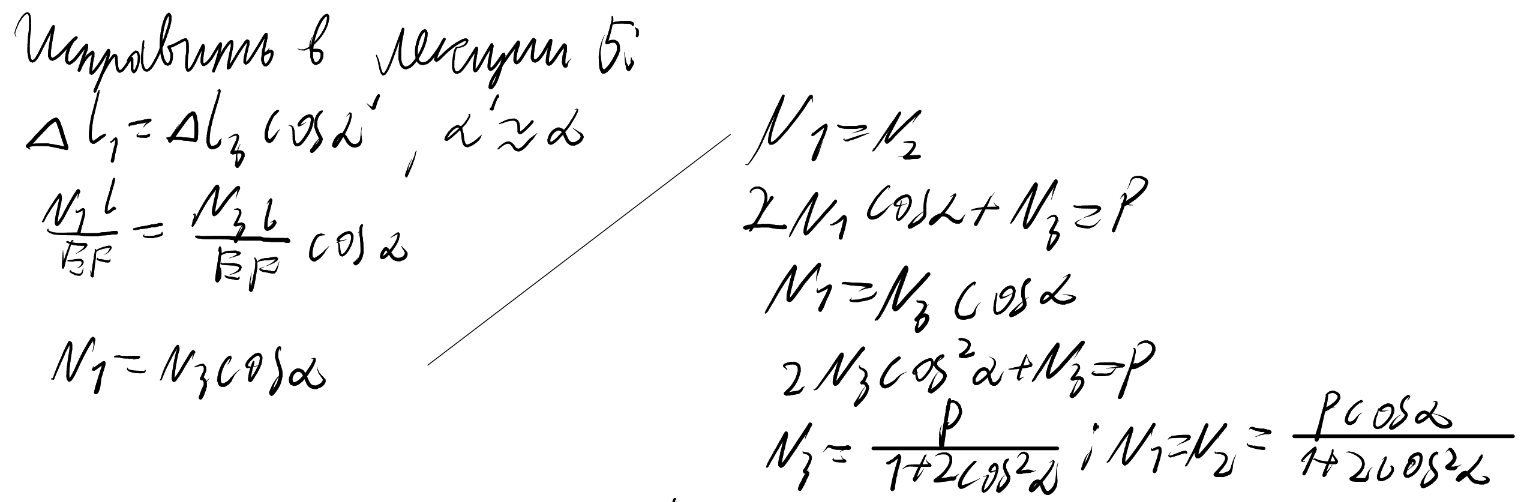 Исправить в лекции 5:
Δl₁ = Δl₃ cosα', α' ≈ α
N₁l/EF = N₃l/EF cosα
N₁ = N₃cosα
N₁ = N₂
2N₁ cosα + N₃ = P
N₁ = N₃ cosα
2N₃cos²α + N₃ = P
N₃ = P/(1+2cos²α) ; N₁ = N₂ = Pcosα/(1+2cos²α)